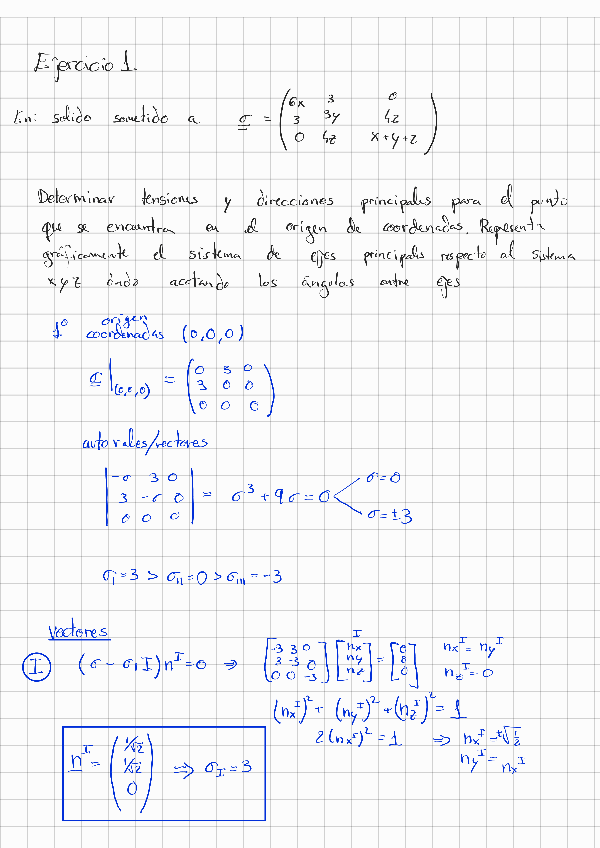 Ejercicio 1.
En: solido sometido a σ = ( 6x 3 0
3 3y 4z
0 4z x+y+z )
Determinar tensiones y direcciones principales para el punto
que se encuentra en el origen de coordenadas. Representa
gráficamente el sistema de ejes principales respecto al sistema
xyz acotando los ángulos entre ejes
1º origen
coordenadas (0,0,0)
σ|(0,0,0) = ( 0 3 0
3 0 0
0 0 0 )
autovales/vectores
| -σ 3 0
3 -σ 0
0 0 0 | = σ³ + 9σ = 0 < σ=0
σ=±3
σI = 3 > σII = 0 > σIII = -3
Vectores
I (σ - σI I) nI = 0 ⇒ [ -3 3 0
3 -3 0
0 0 -3 ] [ nx
ny
nz ]I = [ 0
0
0 ] nxI = nyI
nzI = 0
(nxI)² + (nyI)² + (nzI)² = 1
2(nxI)² = 1 ⇒ nxI = ±√1/2
nyI = nxI
nI = ( 1/√2
1/√2
0 ) ⇒ σI = 3